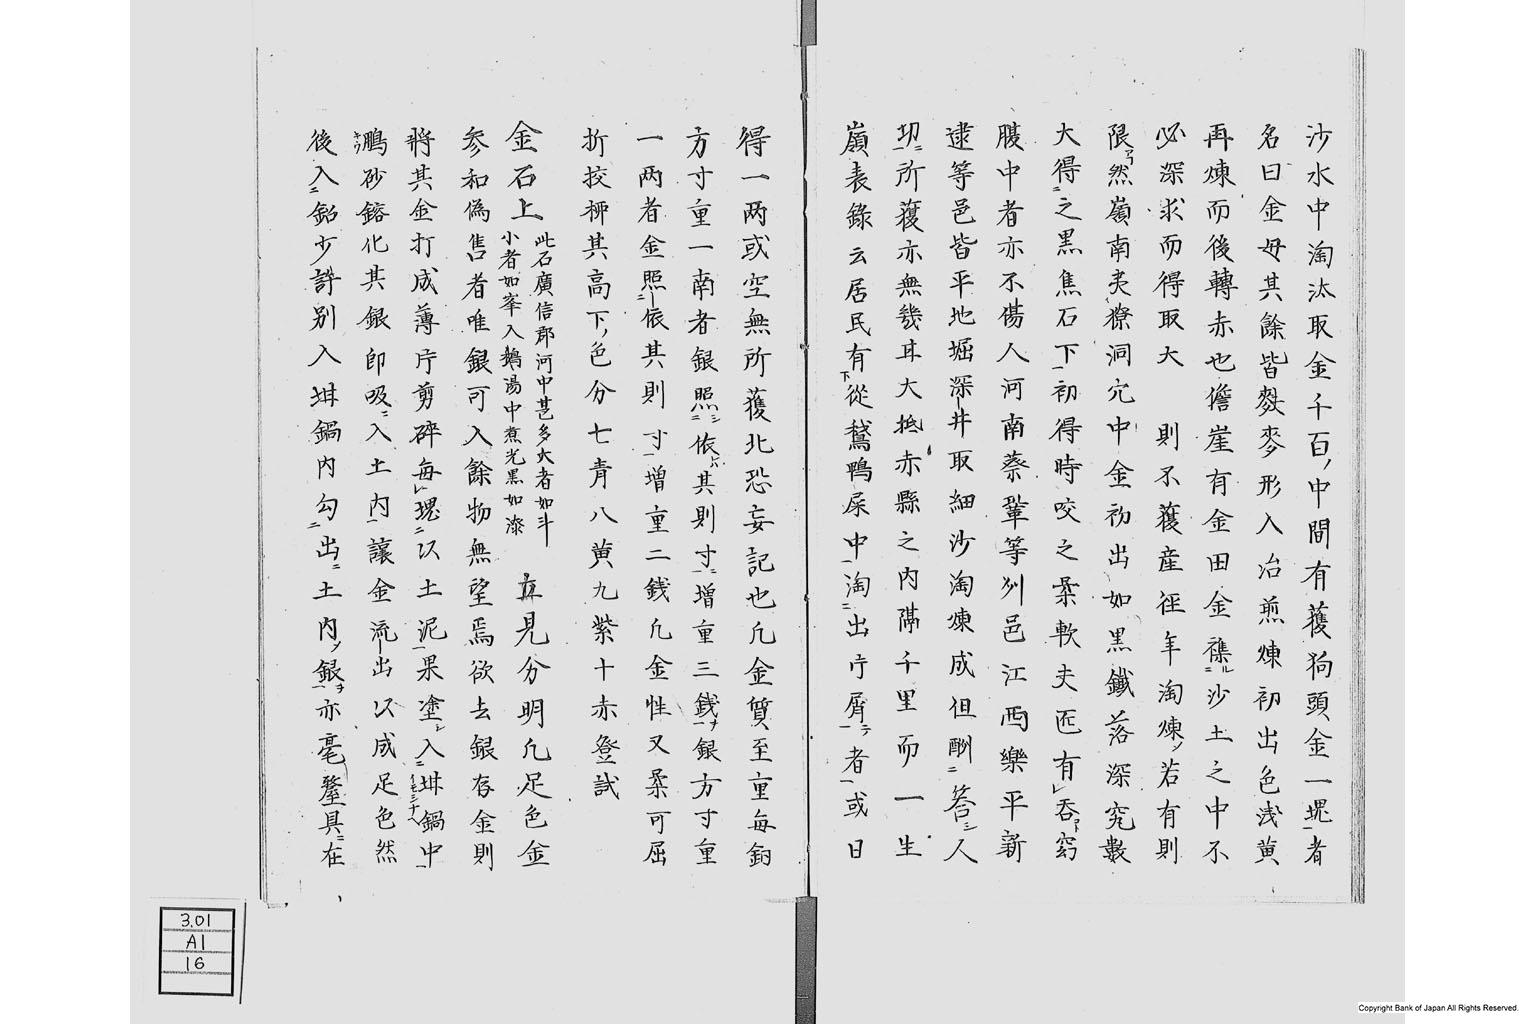 沙水中淘汰取金千百中間有獲狗頭金一塊者
名曰金母其餘皆麩麥形入冶煎煉初出色浅黄
再煉而後轉赤也儋崖有金田金襍沙土之中不
必深求而得取大 則不獲産徑年淘煉若有則
限然嶺南夷獠洞穴中金初出如黒鐵落深究數
大得之黒焦石下初得時咬之柔軟夫匠有呑窃
腹中者亦不傷人河南蔡鞏等州邑江西樂平新
逮等邑皆平地堀深井取細沙淘煉成但酬答人
功所獲亦無幾耳大抵赤縣之内隔千里而一生
嶺表錄云居民有從鵞鴨屎中淘出片屑者或日
得一两或空無所獲北恐妄記也凢金質至重每銅
方寸重一兩者銀照依其則寸增重三銭銀方寸重
一两者金照依其則寸增重二銭凢金性又柔可屈
折挍柳其高下色分七青八黄九紫十赤登試
金石上 此石廣信郡河中甚多大者如斗
小者如峯入鵝湯中煮光黒如漆 立見分明凢足色金
参和偽售者唯銀可入餘物無望焉欲去銀存金則
將其金打成薄片剪碎每塊以土泥果塗入坩鍋中
鵬砂鎔化其銀即吸入土内讓金流出以成足色然
後入鉛少許別入坩鍋内勾出土内銀亦毫釐具在
3.01
A1
16
Copyright Bank of Japan All Rights Reserved.